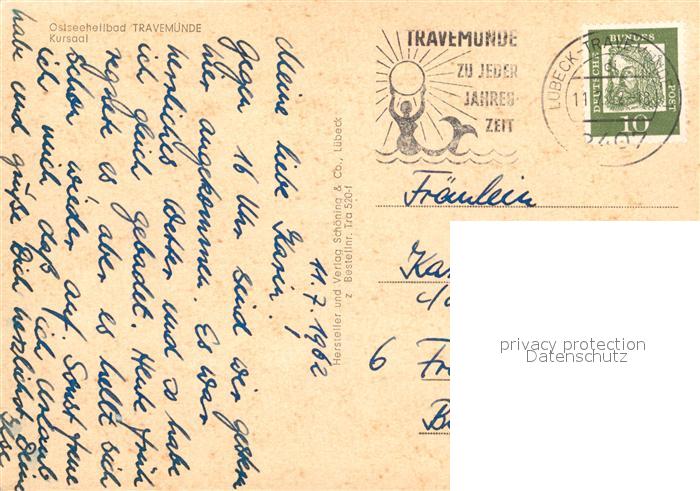 Ostseeheilbad TRAVEMÜNDE
Kursaal
11.7.1962
Meine liebe Karin!
Gegen 16 Uhr sind wir gestern
hier angekommen. Es war
herrliches Wetter und so habe
ich gleich gebadet. Heute früh
regnete es aber es hellt sich
schon wieder auf. Sonst freue
ich mich daß ich Urlaub
habe und grüße Dich herzlichst Deine
Ilse
Hersteller und Verlag Schöning & Co., Lübeck
z Bestellnr. Tra 520-f
TRAVEMÜNDE
ZU JEDER
JAHRES-
ZEIT
LÜBECK-TRAVEMÜNDE
11
DEUTSCHE BUNDESPOST
10
Fräulein
Ka
c/o
6 Fr
B
privacy protection
Datenschutz